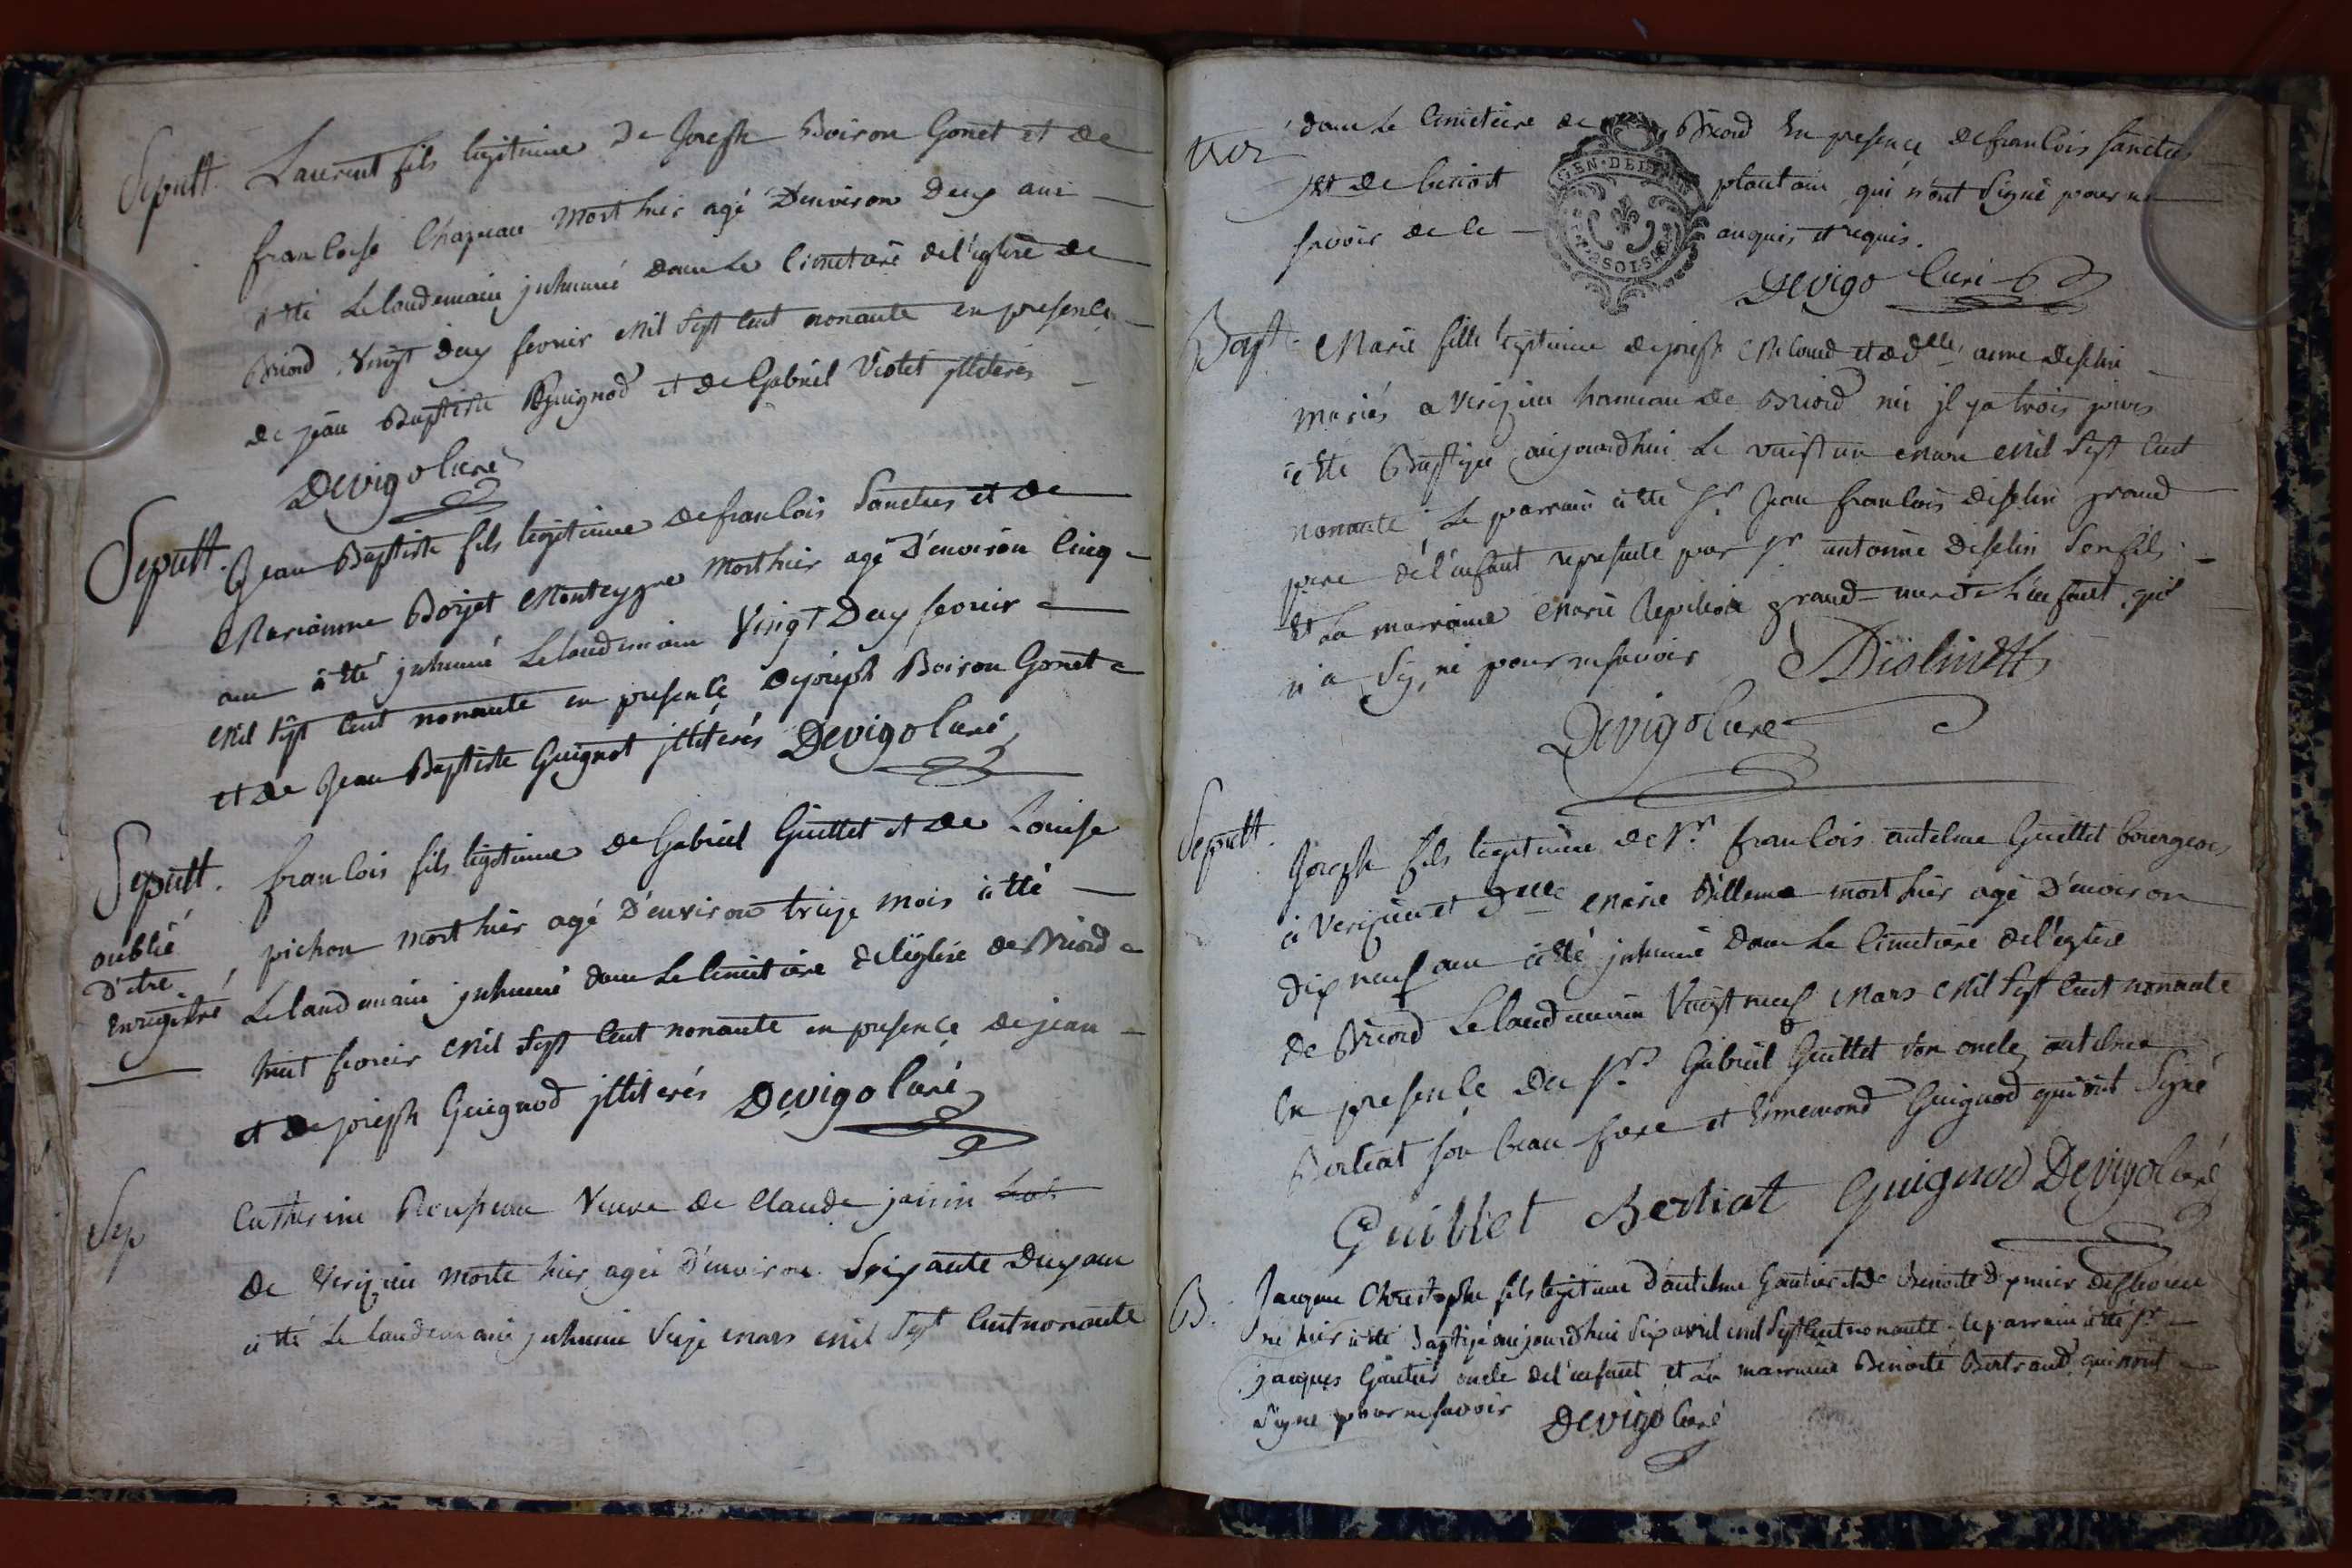 Sepult. Laurent fils legitime de Joseph Boiron Gonet et de
francloise Chapeau mort hier agé d'environ deux ans
a été le landemain juhumé dans le cimetiere de l'eglise de
Briord vingt deux fevrier mil sept cent nonante en presence
de jean Baptiste Guignod et de Gabriel Violet jlliterés
Devigo curé
Sepult. Jean Baptiste fils legitime de francois Sanctus et de
Marianne Borjet mort hier agé d'environ cinq
ans à été juhumé le landemain vingt deux fevrier
mil sept cent nonante en presence de joseph Boiron Gonet
et de Jean Baptiste Guignot jlliterés Devigo curé
Sepult. francois fils legitime de Gabriel Guillet et de Louise
oublié pichon mort hier agé d'environ treize mois à été
d'etre
enregistré le landemain juhumé dans le cimetiere de l'eglise de Briord
huit fevrier mil sept cent nonante en presence de jean
et de joseph Guignod jlliterés Devigo curé
Sep Catherine veuve de claude janin
de verizieu morte hier agée d'environ soixante deux ans
à été le landemain juhumée seize mars mil sept cent nonante
dans le cimetiere de Briord en presence de francois sanctus
et de benoit plantain qui n'ont signé pour ne
savoir de ce enquis et requis.
GEN · DE
Devigo curé
Bapt. Marie fille legitime de joseph et de dlle. anne
mariés a verizieu hameau de Briord née jl ya trois jours
à été Baptizée aujourdhui le vingt un mars mil sept cent
nonante, le parrain à été Sr. Jean francois grand
pere de l'enfant represente par Sr antoine son fils
et la marraine marie grand-mere de l'enfant, qui
n'a signé pour ne savoir
Devigo curé
Sepult. Joseph fils legitime de Sr. francois antelme Guillet bourgeois
à verizieu et Dlle marie Billema mort hier agé d'environ
dix neuf ans à été juhumé dans le cimetiere de l'eglise
de Briord le landemain vingt neuf mars mil sept cent nonante
en presence des Srs Gabriel Guillet son oncle antelme
Bertiat son beau frere et Ennemond Guignod qui ont signé
Guillet Bertiat Guignod Devigo curé
B. Jacque Christophe fils legitime d'antelme Gautier et de Benoite
né hier à été Baptizé aujourdhui six avril mil sept cent nonante. le parrain à été Sr
jacques Gautier oncle de l'enfant et la marraine Benoite Bertrand qui n'ont
signé pour ne savoir Devigo curé